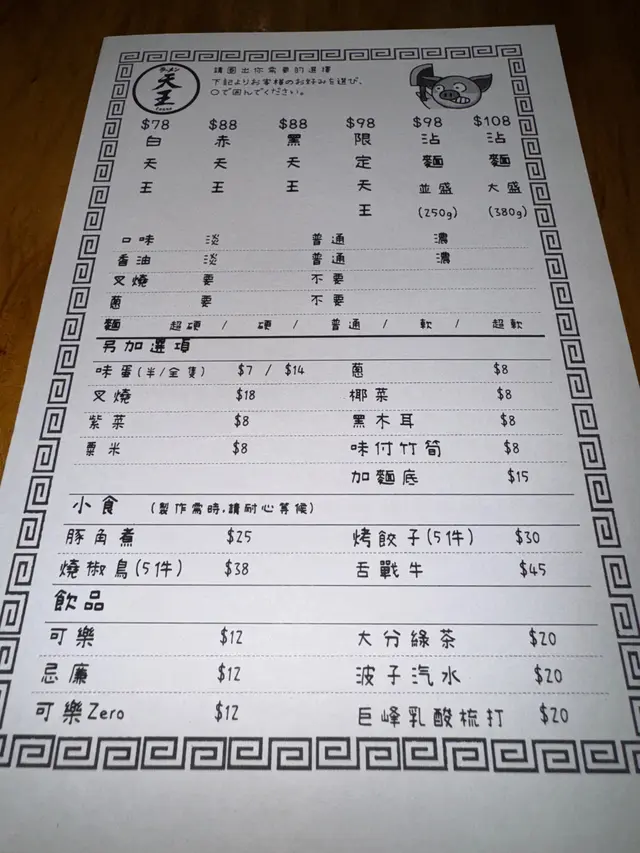 ラーメン 天王
請圈出你需要的選擇
下記よりお客様のお好みを選び、
○で囲んでください。
$78 $88 $88 $98 $98 $108
白天王 赤天王 黑天王 限定天王 沾麵並盛(250g) 沾麵大盛(380g)
口味 淡 普通 濃
香油 淡 普通 濃
叉燒 要 不要
菌 要 不要
麵 超硬 / 硬 / 普通 / 軟 / 超軟
另加選項
味蛋(半/全隻) $7 / $14 菌 $8
叉燒 $18 椰菜 $8
紫菜 $8 黑木耳 $8
粟米 $8 味付竹筍 $8
加麵底 $15
小食 (製作需時,請耐心等候)
豚角煮 $25 烤餃子(5件) $30
燒椒鳥(5件) $38 舌戰牛 $45
飲品
可樂 $12 大分綠茶 $20
忌廉 $12 波子汽水 $20
可樂Zero $12 巨峰乳酸梳打 $20